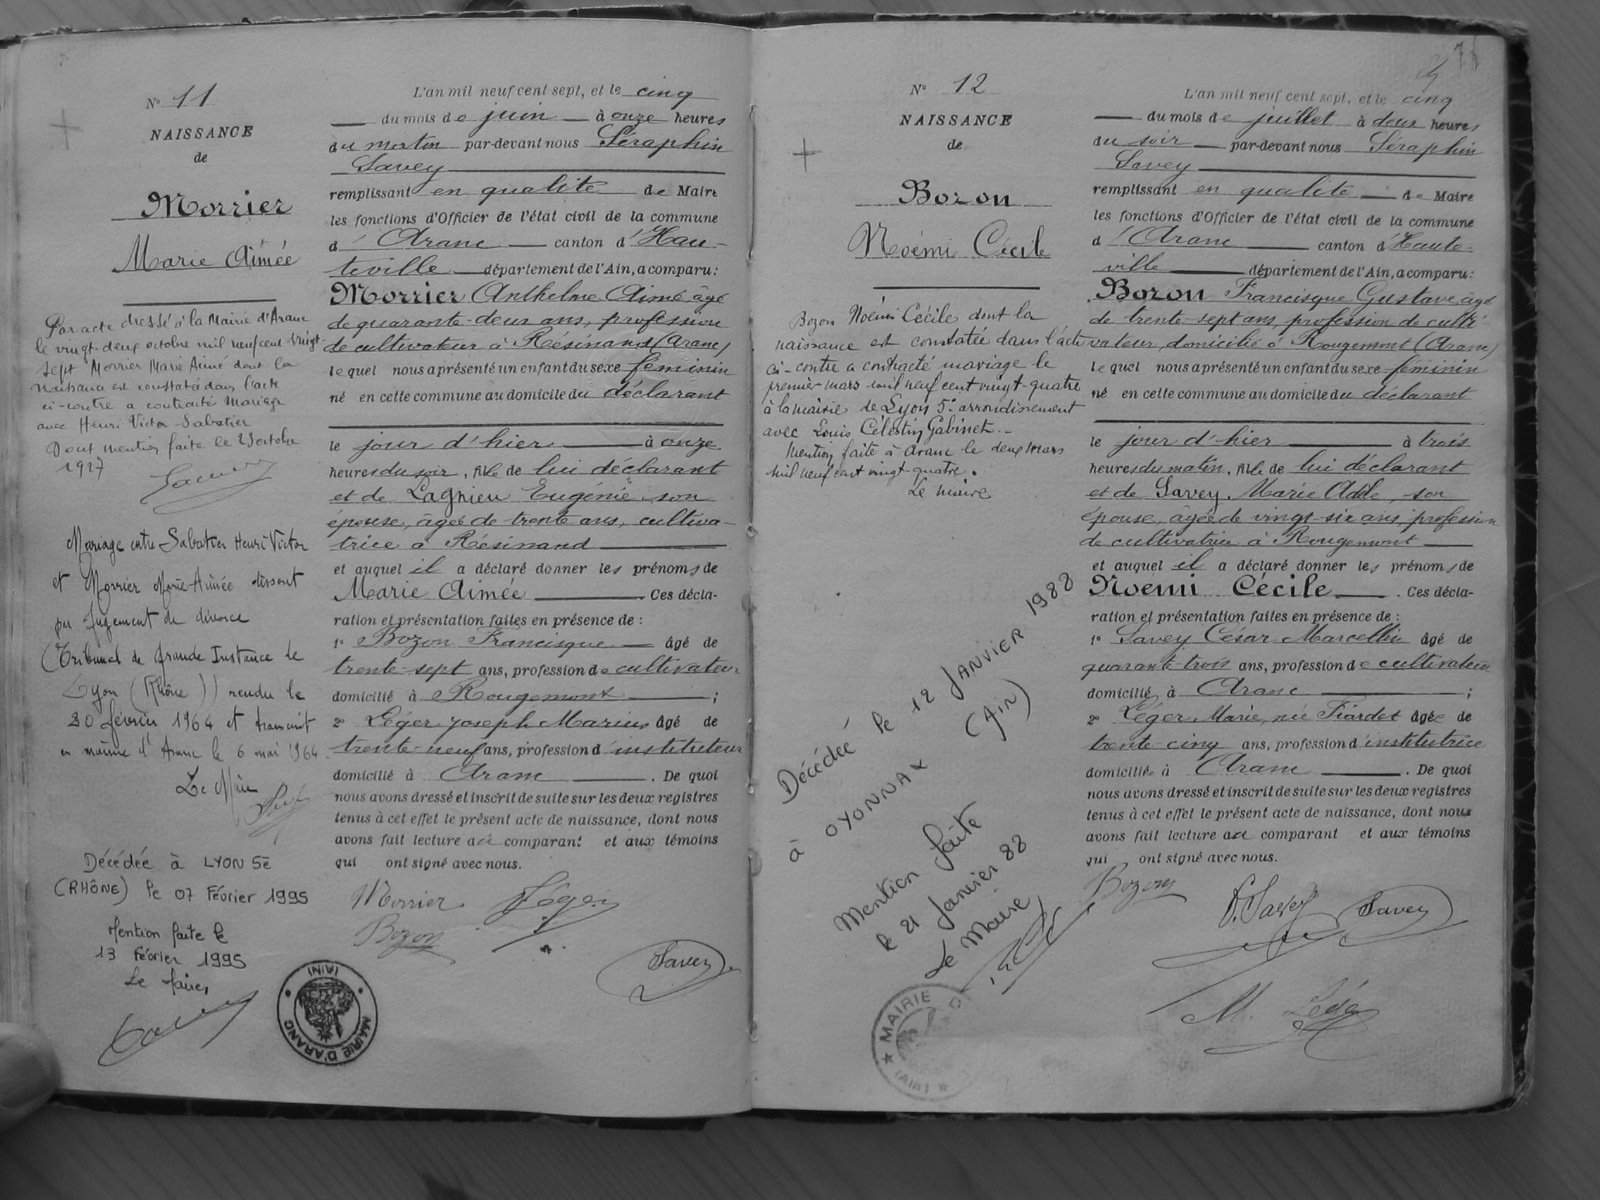 N° 11
NAISSANCE
de
Morrier
Marie Aimée
Par acte dressé à la Mairie d'Aranc
le vingt-deux octobre mil neuf cent vingt-
sept Morrier Marie Aimé dont la
naissance est constatée dans l'acte
ci-contre a contracté mariage
avec Henri Victor Sabatier
Dont mention faite le octobre
1927
Mariage entre Sabatier Henri Victor
et Morrier Marie-Aimée dissout
par jugement de divorce
(Tribunal de Grande Instance de
Lyon (Rhône)) rendu le
20 février 1964 et transcrit
en mairie d'Aranc le 6 mai 1964.
Le Maire
Décédée à LYON 5è
(RHÔNE) le 07 Février 1995
Mention faite le
13 Février 1995
Le Maire,
L'an mil neuf cent sept, et le cinq
du mois de juin à onze heures
du matin par-devant nous Séraphin
Savey
remplissant en qualité de Maire
les fonctions d'Officier de l'état civil de la commune
d'Aranc canton d'Hau-
teville département de l'Ain, a comparu:
Morrier Anthelme Aimé âgé
de quarante-deux ans, profession
de cultivateur à Résinand (Aranc)
lequel nous a présenté un enfant du sexe féminin
né en cette commune au domicile du déclarant
le jour d'hier à onze
heures du soir, née de lui déclarant
et de Lagnieu Eugénie son
épouse, âgée de trente ans, cultiva-
trice à Résinand
et auquel il a déclaré donner les prénoms de
Marie Aimée . Ces décla-
ration et présentation faites en présence de :
1° Bozon Francisque âgé de
trente-sept ans, profession de cultivateur
domicilié à Rougemont ;
2° Léger Joseph Marius âgé de
trente-neuf ans, profession d'instituteur
domicilié à Aranc . De quoi
nous avons dressé et inscrit de suite sur les deux registres
tenus à cet effet le présent acte de naissance, dont nous
avons fait lecture au comparant et aux témoins
qui ont signé avec nous.
Morrier Léger
Bozon
Savey
MAIRIE D'ARANC
(AIN)
N° 12
NAISSANCE
de
Bozon
Noémi Cécile
Bozon Noémi Cécile dont la
naissance est constatée dans l'acte
ci-contre a contracté mariage le
premier mars mil neuf cent vingt-quatre
à la mairie de Lyon 5e arrondissement
avec Louis Célestin Gabinet.-
Mention faite à Aranc le deux mars
mil neuf cent vingt quatre.
Le maire
Décédée le 12 JANVIER 1988
à OYONNAX (Ain)
Mention faite
le 21 Janvier 88
Le Maire
MAIRIE D
(AIN)
L'an mil neuf cent sept, et le cinq
du mois de juillet à deux heures
du soir par-devant nous Séraphin
Savey
remplissant en qualité de Maire
les fonctions d'Officier de l'état civil de la commune
d'Aranc canton d'Haute-
ville département de l'Ain, a comparu:
Bozon Francisque Gustave âgé
de trente-sept ans, profession de culti
vateur, domicilié à Rougemont (Aranc)
lequel nous a présenté un enfant du sexe féminin
né en cette commune au domicile du déclarant
le jour d'hier à trois
heures du matin, née de lui déclarant
et de Savey Marie Adèle, son
épouse, âgée de vingt-six ans, profession
de cultivatrice à Rougemont
et auquel il a déclaré donner les prénoms de
Noemi Cécile . Ces décla-
ration et présentation faites en présence de :
1° Savey César Marcellin âgé de
quarante-trois ans, profession de cultivateur
domicilié à Aranc ;
2° Léger Marie, née Tiardet âgée de
trente-cinq ans, profession d'institutrice
domiciliée à Aranc . De quoi
nous avons dressé et inscrit de suite sur les deux registres
tenus à cet effet le présent acte de naissance, dont nous
avons fait lecture au comparant et aux témoins
qui ont signé avec nous.
Bozon
Savey Savey
M. Léger